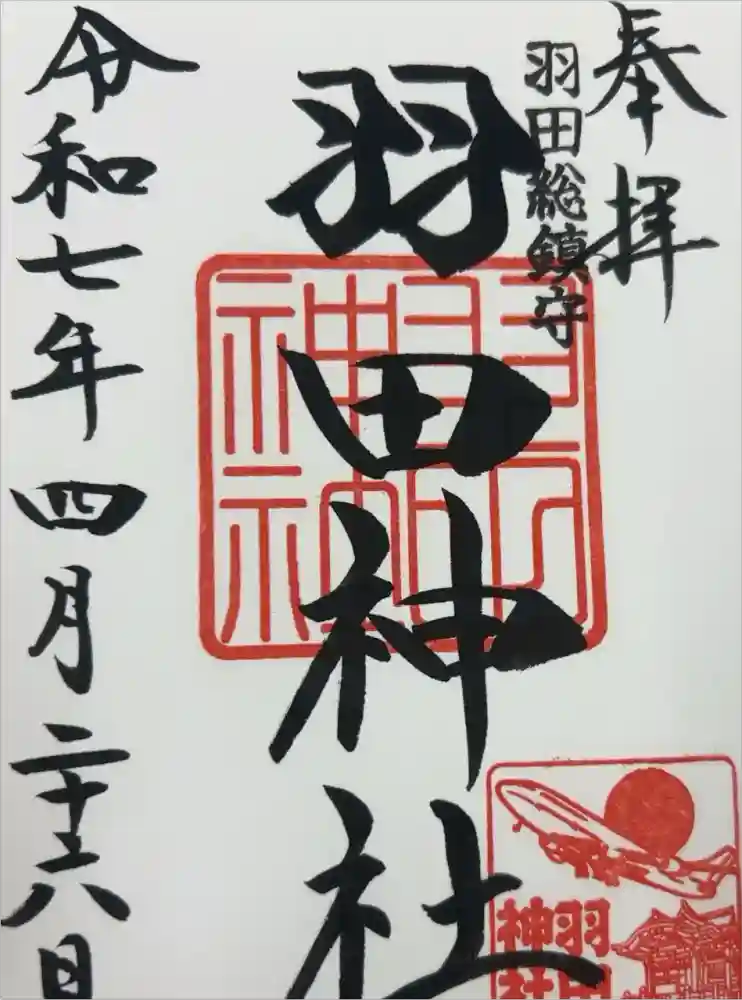 奉拝
羽田総鎮守
羽田神社
令和七年四月二十六日
羽田神社
羽田
神社